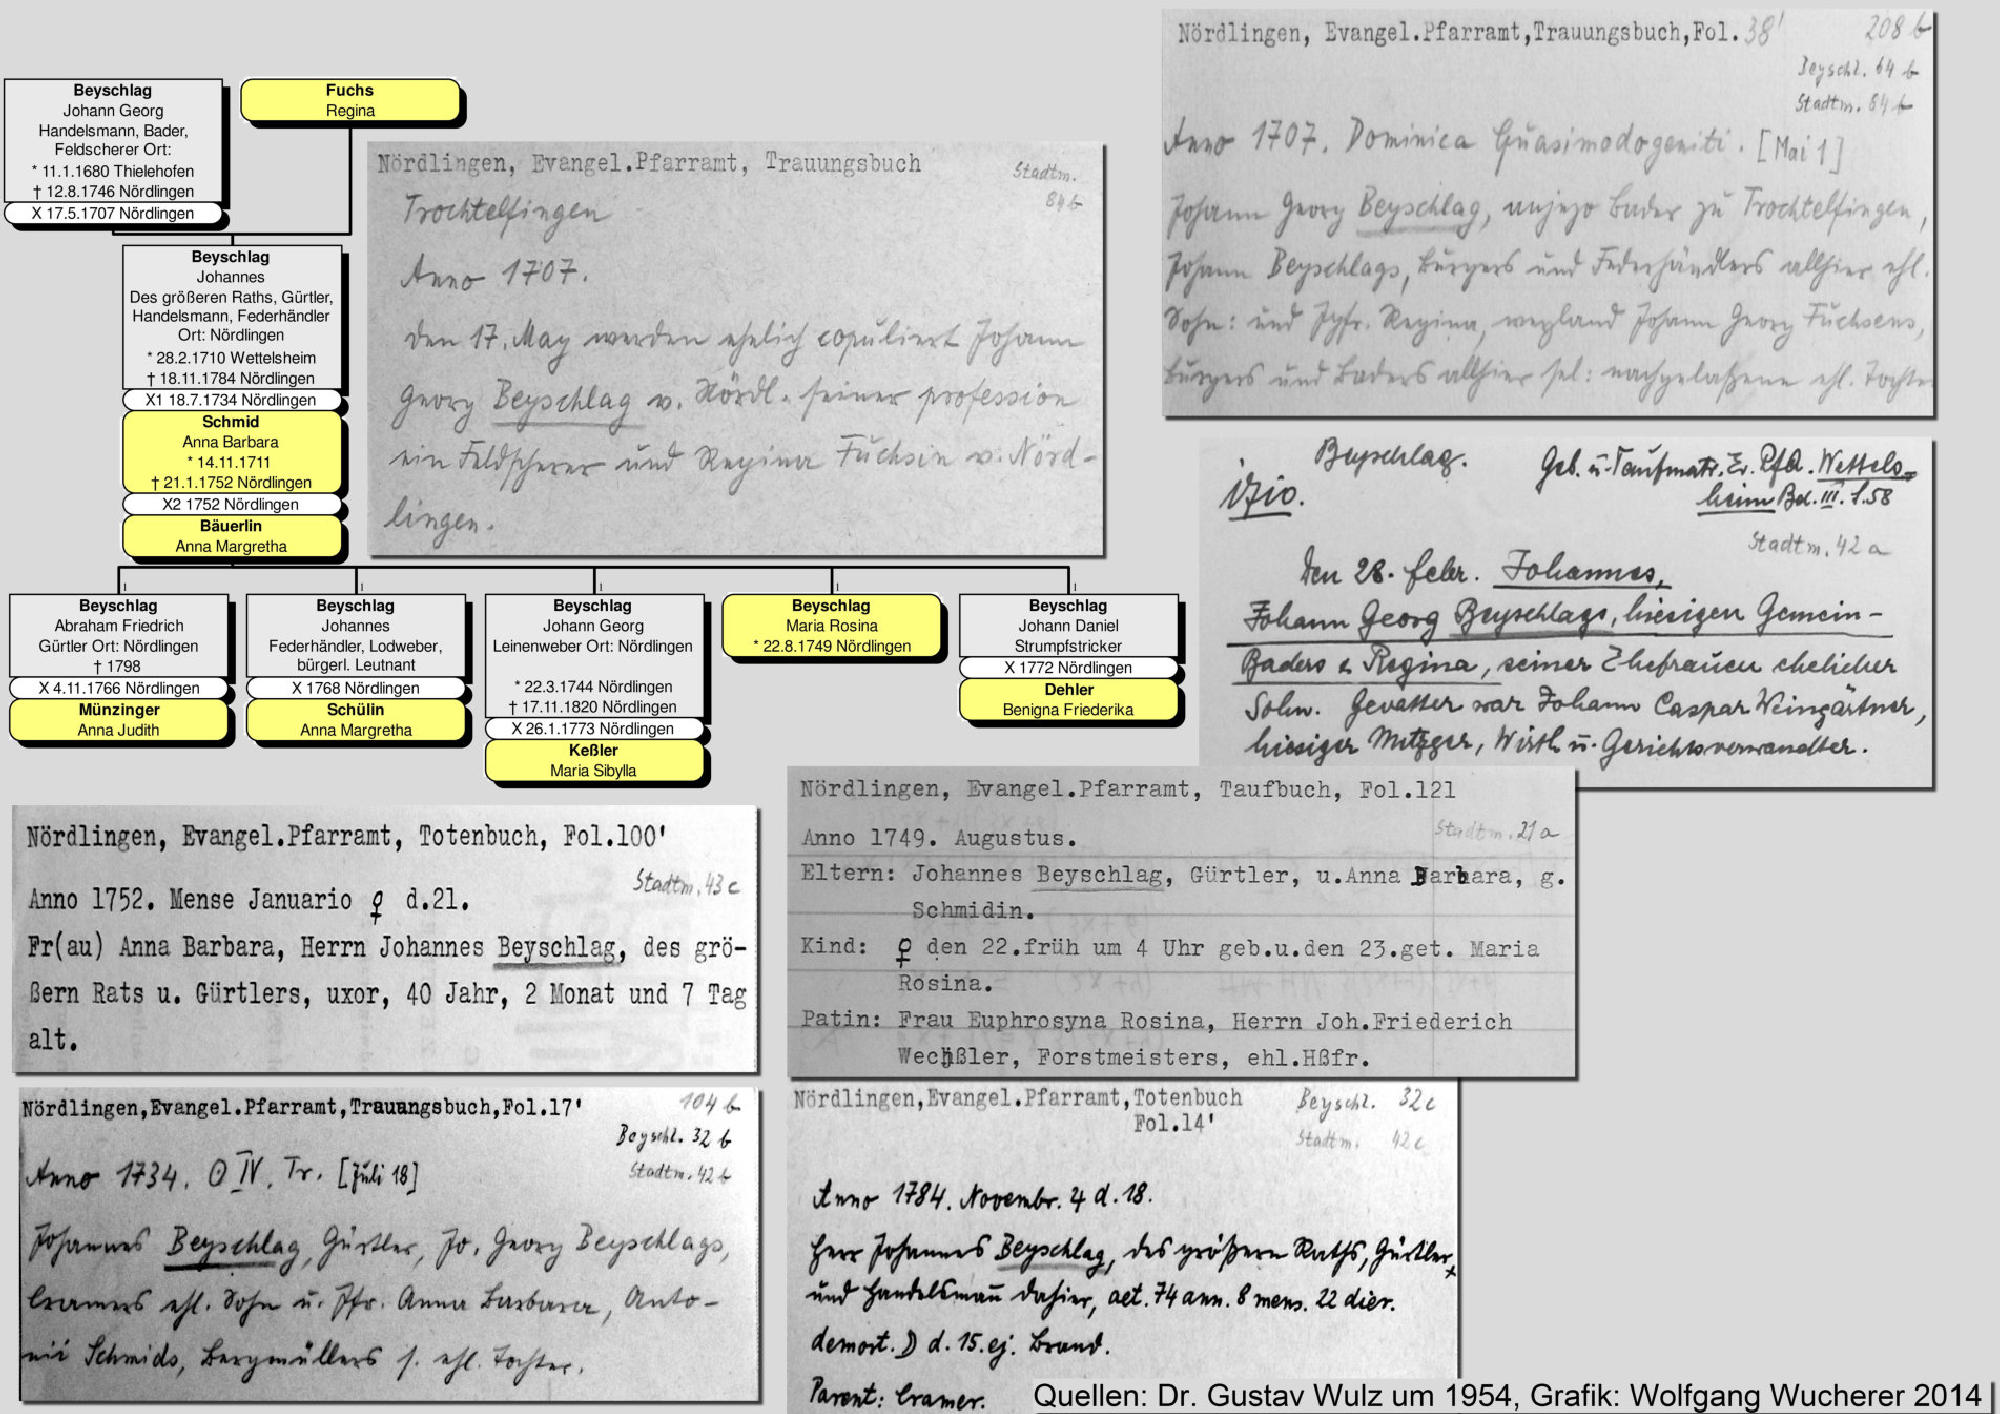 Beyschlag
Johann Georg
Handelsmann, Bader,
Feldscherer Ort:
* 11.1.1680 Thielehofen
† 12.8.1746 Nördlingen
X 17.5.1707 Nördlingen
Fuchs
Regina
Beyschlag
Johannes
Des größeren Raths, Gürtler,
Handelsmann, Federhändler
Ort: Nördlingen
* 28.2.1710 Wettelsheim
† 18.11.1784 Nördlingen
X1 18.7.1734 Nördlingen
Schmid
Anna Barbara
* 14.11.1711
† 21.1.1752 Nördlingen
X2 1752 Nördlingen
Bäuerlin
Anna Margretha
Beyschlag
Abraham Friedrich
Gürtler Ort: Nördlingen
† 1798
X 4.11.1766 Nördlingen
Münzinger
Anna Judith
Beyschlag
Johannes
Federhändler, Lodweber,
bürgerl. Leutnant
X 1768 Nördlingen
Schülin
Anna Margretha
Beyschlag
Johann Georg
Leinenweber Ort: Nördlingen
* 22.3.1744 Nördlingen
† 17.11.1820 Nördlingen
X 26.1.1773 Nördlingen
Keßler
Maria Sibylla
Beyschlag
Maria Rosina
* 22.8.1749 Nördlingen
Beyschlag
Johann Daniel
Strumpfstricker
X 1772 Nördlingen
Dehler
Benigna Friederika
Nördlingen, Evangel.Pfarramt, Trauungsbuch
Stadtm.
84b
Trochtelfingen
Anno 1707.
den 17. May werden ehelich copuliert Johann
Georg Beyschlag v. Nördl. seiner profession
ein Feldscherer und Regina Fuchsin v. Nörd-
lingen.
Nördlingen, Evangel.Pfarramt,Trauungsbuch,Fol. 38' 208 b
Beyschl. 64 b
Stadtm. 84 b
Anno 1707. Dominica Quasimodogeniti. [Mai 1]
Johann Georg Beyschlag, anjezo Bader zu Trochtelfingen,
Johann Beyschlags, Burgers und Federhändlers allhier ehl.
Sohn: und Jgfr. Regina, weyland Johann Georg Fuchsens,
Burgers und Baders allhier sel: nachgelaßene ehl. Tochter
Beyschlag. Geb. u. Taufmatr. Ev. Pfa. Wettels-
1710. heim Bd. III. S. 58
Stadtm. 42 a
Den 28. febr. Johannes,
Johann Georg Beyschlags, hiesigen Gemein-
Baders & Regina, seiner Ehefrauen ehelicher
Sohn. Gevatter war Johann Caspar Weingärtner,
hiesiger Metzger, Wirth u. Gerichtsverwandter.
Nördlingen, Evangel.Pfarramt, Totenbuch, Fol.100'
Stadtm. 43 c
Anno 1752. Mense Januario ♀ d.21.
Fr(au) Anna Barbara, Herrn Johannes Beyschlag, des grö-
ßern Rats u. Gürtlers, uxor, 40 Jahr, 2 Monat und 7 Tag
alt.
Nördlingen, Evangel.Pfarramt, Taufbuch, Fol.121
Stadtm. 21a
Anno 1749. Augustus.
Eltern: Johannes Beyschlag, Gürtler, u.Anna Barbara, g.
Schmidin.
Kind: ♀ den 22.früh um 4 Uhr geb.u.den 23.get. Maria
Rosina.
Patin: Frau Euphrosyna Rosina, Herrn Joh.Friederich
Wechßler, Forstmeisters, ehl.Hßfr.
Nördlingen,Evangel.Pfarramt,Trauungsbuch,Fol.17' 104 b
Beyschl. 32 b
Stadtm. 42 b
Anno 1734. ⊙ IV. Tr. [Juli 18]
Johannes Beyschlag, Gürtler, Jo. Georg Beyschlags,
Cramers ehl. Sohn u. Jfr. Anna Barbara, Anto-
nii Schmids, Bergmüllers s. ehl. Tochter.
Nördlingen,Evangel.Pfarramt,Totenbuch
Fol.14'
Beyschl. 32c
Stadtm. 42c
Anno 1784. Novembr. 4 d. 18.
Herr Johannes Beyschlag, des größern Raths, Gürtler
und Handelsmañ dahier, aet. 74 ann. 8 mens. 22 dier.
demort. ☽ d. 15. ej. Brand.
Parent: Cramer.
Quellen: Dr. Gustav Wulz um 1954, Grafik: Wolfgang Wucherer 2014